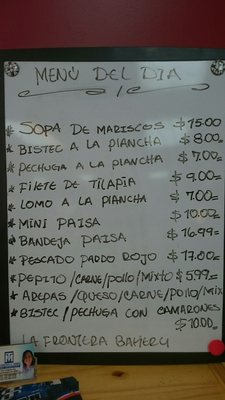 MENÚ DEL DIA
* SOPA DE MARISCOS $15.00
* BISTEC A LA PLANCHA $8.00=
* PECHUGA A LA PLANCHA $7.00=
* FILETE DE TILAPIA $9.00=
* LOMO A LA PLANCHA $7.00=
* MINI PAISA $10.00=
* BANDEJA PAISA $16.99=
* PESCADO PARDO ROJO $17.00=
* PEPITO/CARNE/POLLO/MIXTO $5.99=
* AREPAS/QUESO/CARNE/POLLO/MIX
* BISTEC/PECHUGA CON CAMARONES
$10.00=
LA FRONTERA BAKERY